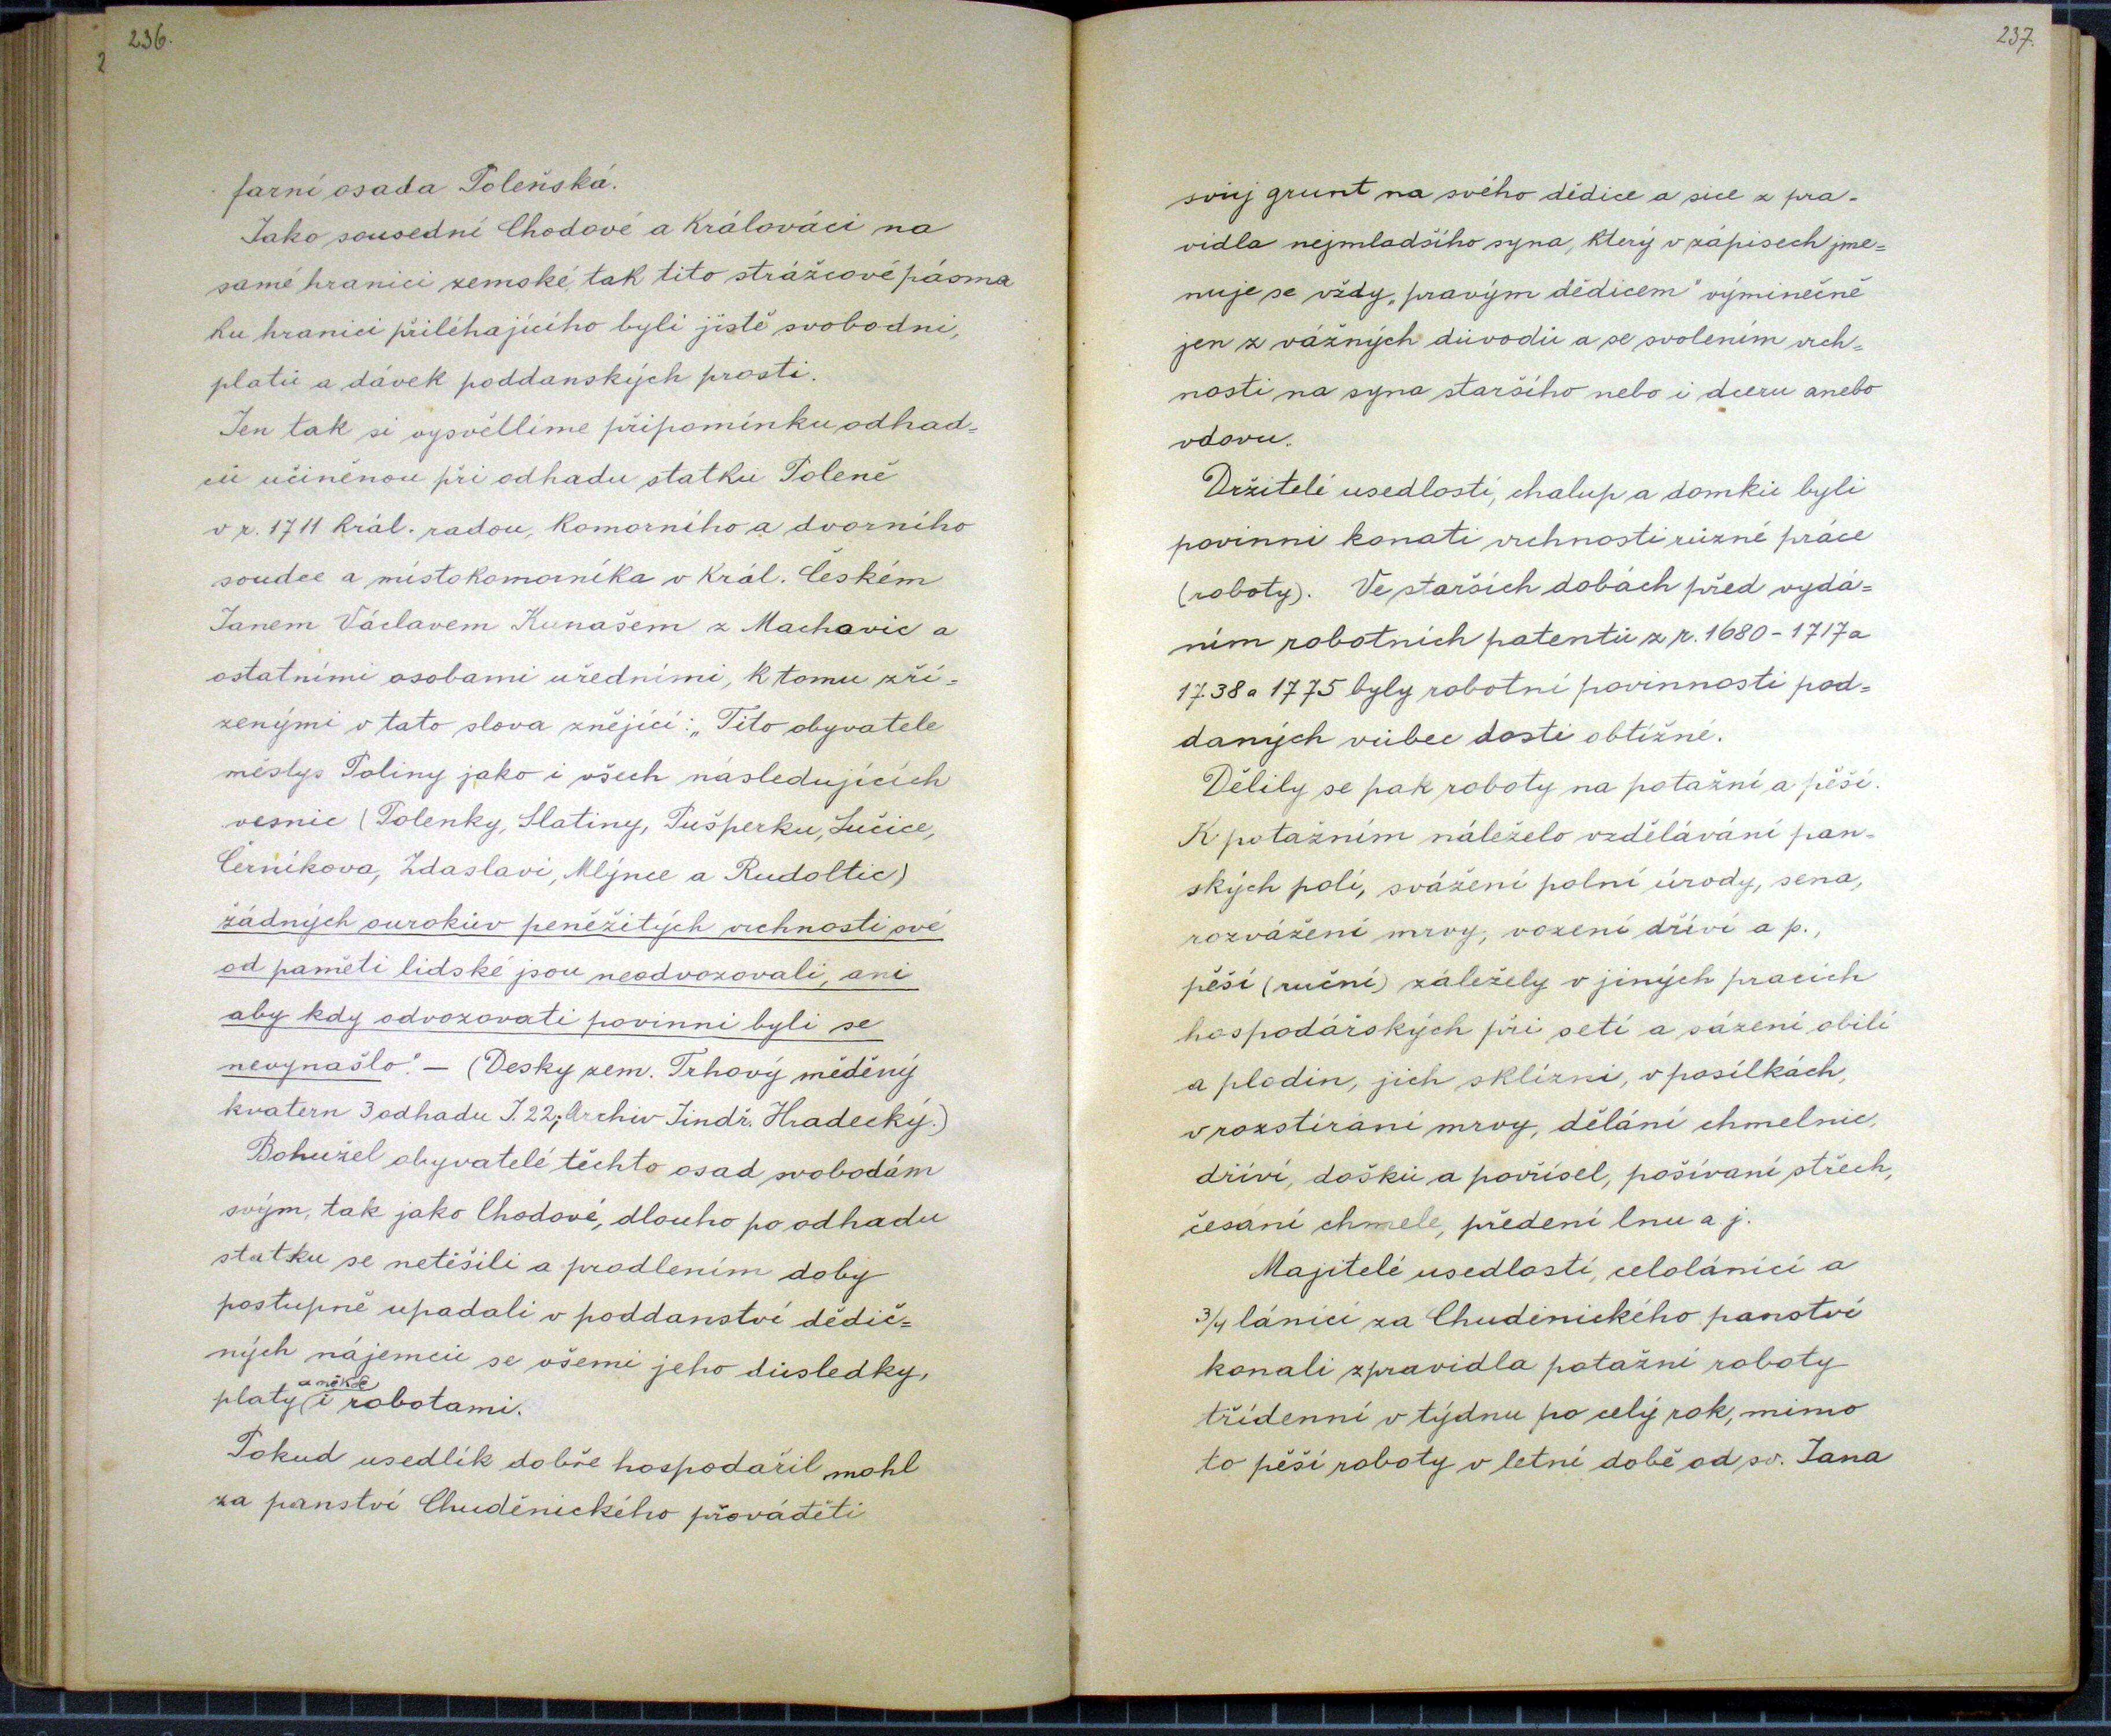 236.
farní osada Poleňská.
Jako sousední Chodové a Králováci na
samé hranici zemské, tak tito strážcové pásma
ku hranici přiléhajícího byli jistě svobodni,
platů a dávek poddanských prosti.
Jen tak si vysvětlíme připomínku odhad=
ců učiněnou při odhadu statku Poleně
v r. 1711 král. radou, komorního a dvorního
soudce a místokomorníka v král. Českém
Janem Václavem Kunašem z Machovic a
ostatními osobami uředními, k tomu zří=
zenými v tato slova znějící: „Tito obyvatele
městys Poliny jako i všech následujících
vesnic (Polenky, Slatiny, Pušperku, Lučice,
Černíkova, Zdaslavi, Mlýnce a Rudoltic)
žádných ourokův peněžitých vrchnosti své
od paměti lidské jsou neodvozovali, ani
aby kdy odvozovati povinni byli se
nevynašlo". — (Desky zem. Trhový měděný
kvatern 3 odhadu J. 22; Archiv Jindř. Hradecký.)
Bohužel obyvatelé těchto osad svobodám
svým, tak jako Chodové, dlouho po odhadu
statku se netěšili a prodlením doby
postupně upadali v poddanství dědič=
ných nájemců se všemi jeho důsledky,
a někde
platy i robotami.
Pokud usedlík dobře hospodařil mohl
za panství Chuděnického převáděti
237.
svůj grunt na svého dědice a sice z pra-
vidla nejmladšího syna, který v zápisech jme=
nuje se vždy „pravým dědicem" výminečně
jen z vážných důvodů a se svolením vrch=
nosti na syna staršího nebo i dceru anebo
vdovu.
Držitelé usedlostí, chalup a domků byli
povinni konati vrchnosti různé práce
(roboty). Ve starších dobách před vydá=
ním robotních patentů z r. 1680 - 1717 a
1738 a 1775 byly robotní povinnosti pod=
daných vůbec dosti obtížné.
Dělily se pak roboty na potažní a pěší.
K potažním náleželo vzdělávání pan-
ských polí, svážení polní úrody, sena,
rozvážení mrvy, vození dříví a p.,
pěší (ruční) záležely v jiných pracích
hospodářských při setí a sázení obilí
a plodin, jich sklizni, v posílkách,
v rozstírání mrvy, dělání chmelnic,
dříví, došků a povřísel, pošívaní střech,
česání chmele, předení lnu a. j.
Majitelé usedlostí, celoláníci a
3/4 láníci za Chudenického panství
konali zpravidla potažní roboty
třídenní v týdnu po celý rok, mimo
to pěší roboty v letní době od sv. Jana